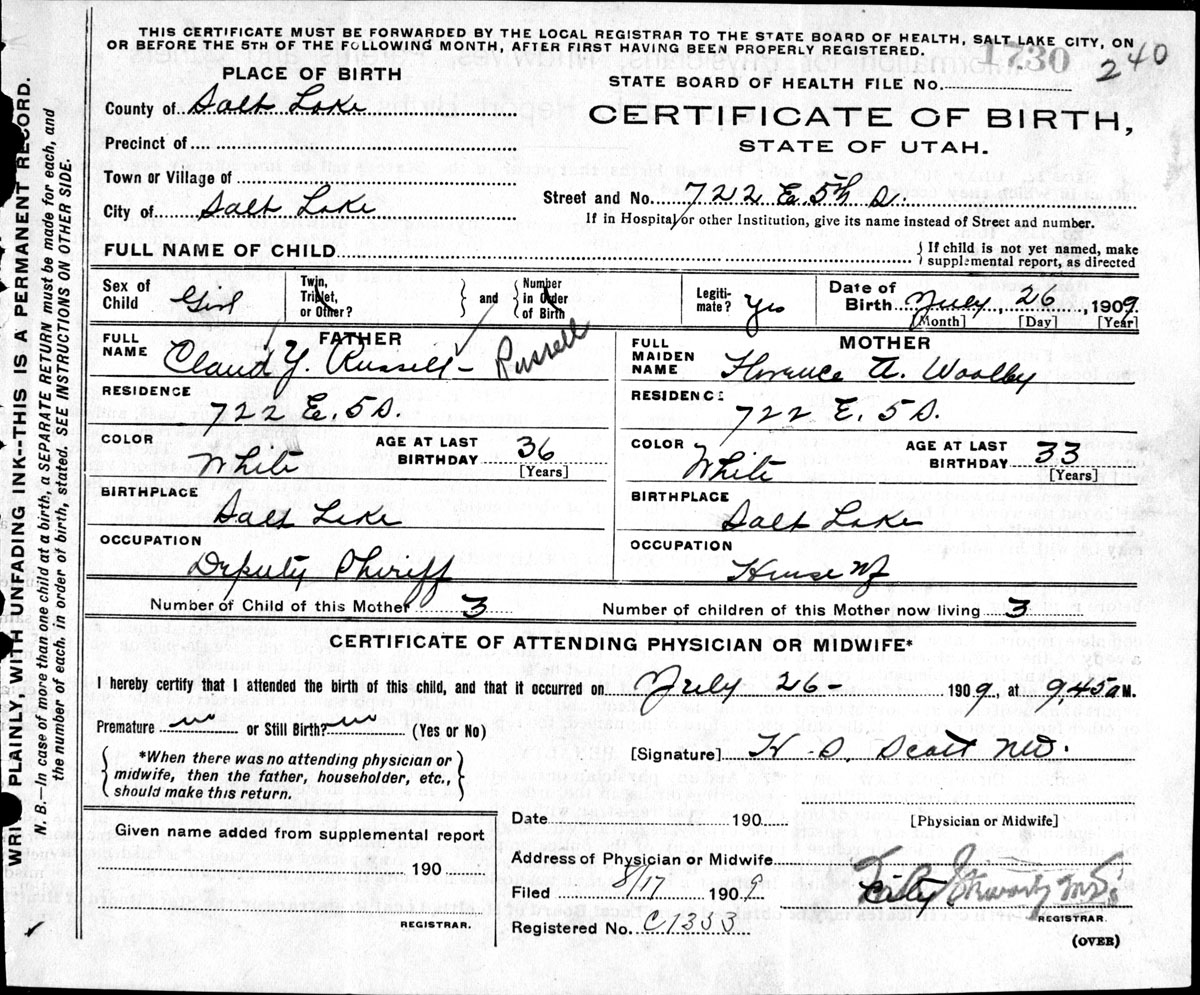 THIS CERTIFICATE MUST BE FORWARDED BY THE LOCAL REGISTRAR TO THE STATE BOARD OF HEALTH, SALT LAKE CITY, ON
OR BEFORE THE 5TH OF THE FOLLOWING MONTH, AFTER FIRST HAVING BEEN PROPERLY REGISTERED.
1730
240
PLACE OF BIRTH
STATE BOARD OF HEALTH FILE No.
County of Salt Lake
CERTIFICATE OF BIRTH,
Precinct of
STATE OF UTAH.
Town or Village of
City of Salt Lake
Street and No. 722 E. 5th S.
If in Hospital or other Institution, give its name instead of Street and number.
FULL NAME OF CHILD
{ If child is not yet named, make
supplemental report, as directed
Sex of Child Girl
Twin, Triplet, or Other? } and { Number in Order of Birth
Legiti- mate? Yes
Date of Birth July, 26, 1909
[Month] [Day] [Year]
FATHER
FULL NAME Claud Y. Russell - Russell
RESIDENCE
722 E. 5 S.
COLOR White
AGE AT LAST BIRTHDAY 36
[Years]
BIRTHPLACE
Salt Lake
OCCUPATION
Deputy Shiriff
MOTHER
FULL MAIDEN NAME Florence A. Woolby
RESIDENCE
722 E. 5 S.
COLOR White
AGE AT LAST BIRTHDAY 33
[Years]
BIRTHPLACE
Salt Lake
OCCUPATION
House Wf
Number of Child of this Mother 3
Number of children of this Mother now living 3
CERTIFICATE OF ATTENDING PHYSICIAN OR MIDWIFE*
I hereby certify that I attended the birth of this child, and that it occurred on July 26 - 1909, at 9,45 a M.
Premature no or Still Birth? no (Yes or No)
{ *When there was no attending physician or
midwife, then the father, householder, etc.,
should make this return. }
[Signature] H. S. Scott MD.
Date 190
[Physician or Midwife]
Given name added from supplemental report
190
REGISTRAR.
Address of Physician or Midwife City
Filed 8/17 1909
M.D.
REGISTRAR.
Registered No. C1353
(OVER)
WRITE PLAINLY, WITH UNFADING INK--THIS IS A PERMANENT RECORD.
N. B.—In case of more than one child at a birth, a SEPARATE RETURN must be made for each, and
the number of each. in order of birth, stated. SEE INSTRUCTIONS ON OTHER SIDE.